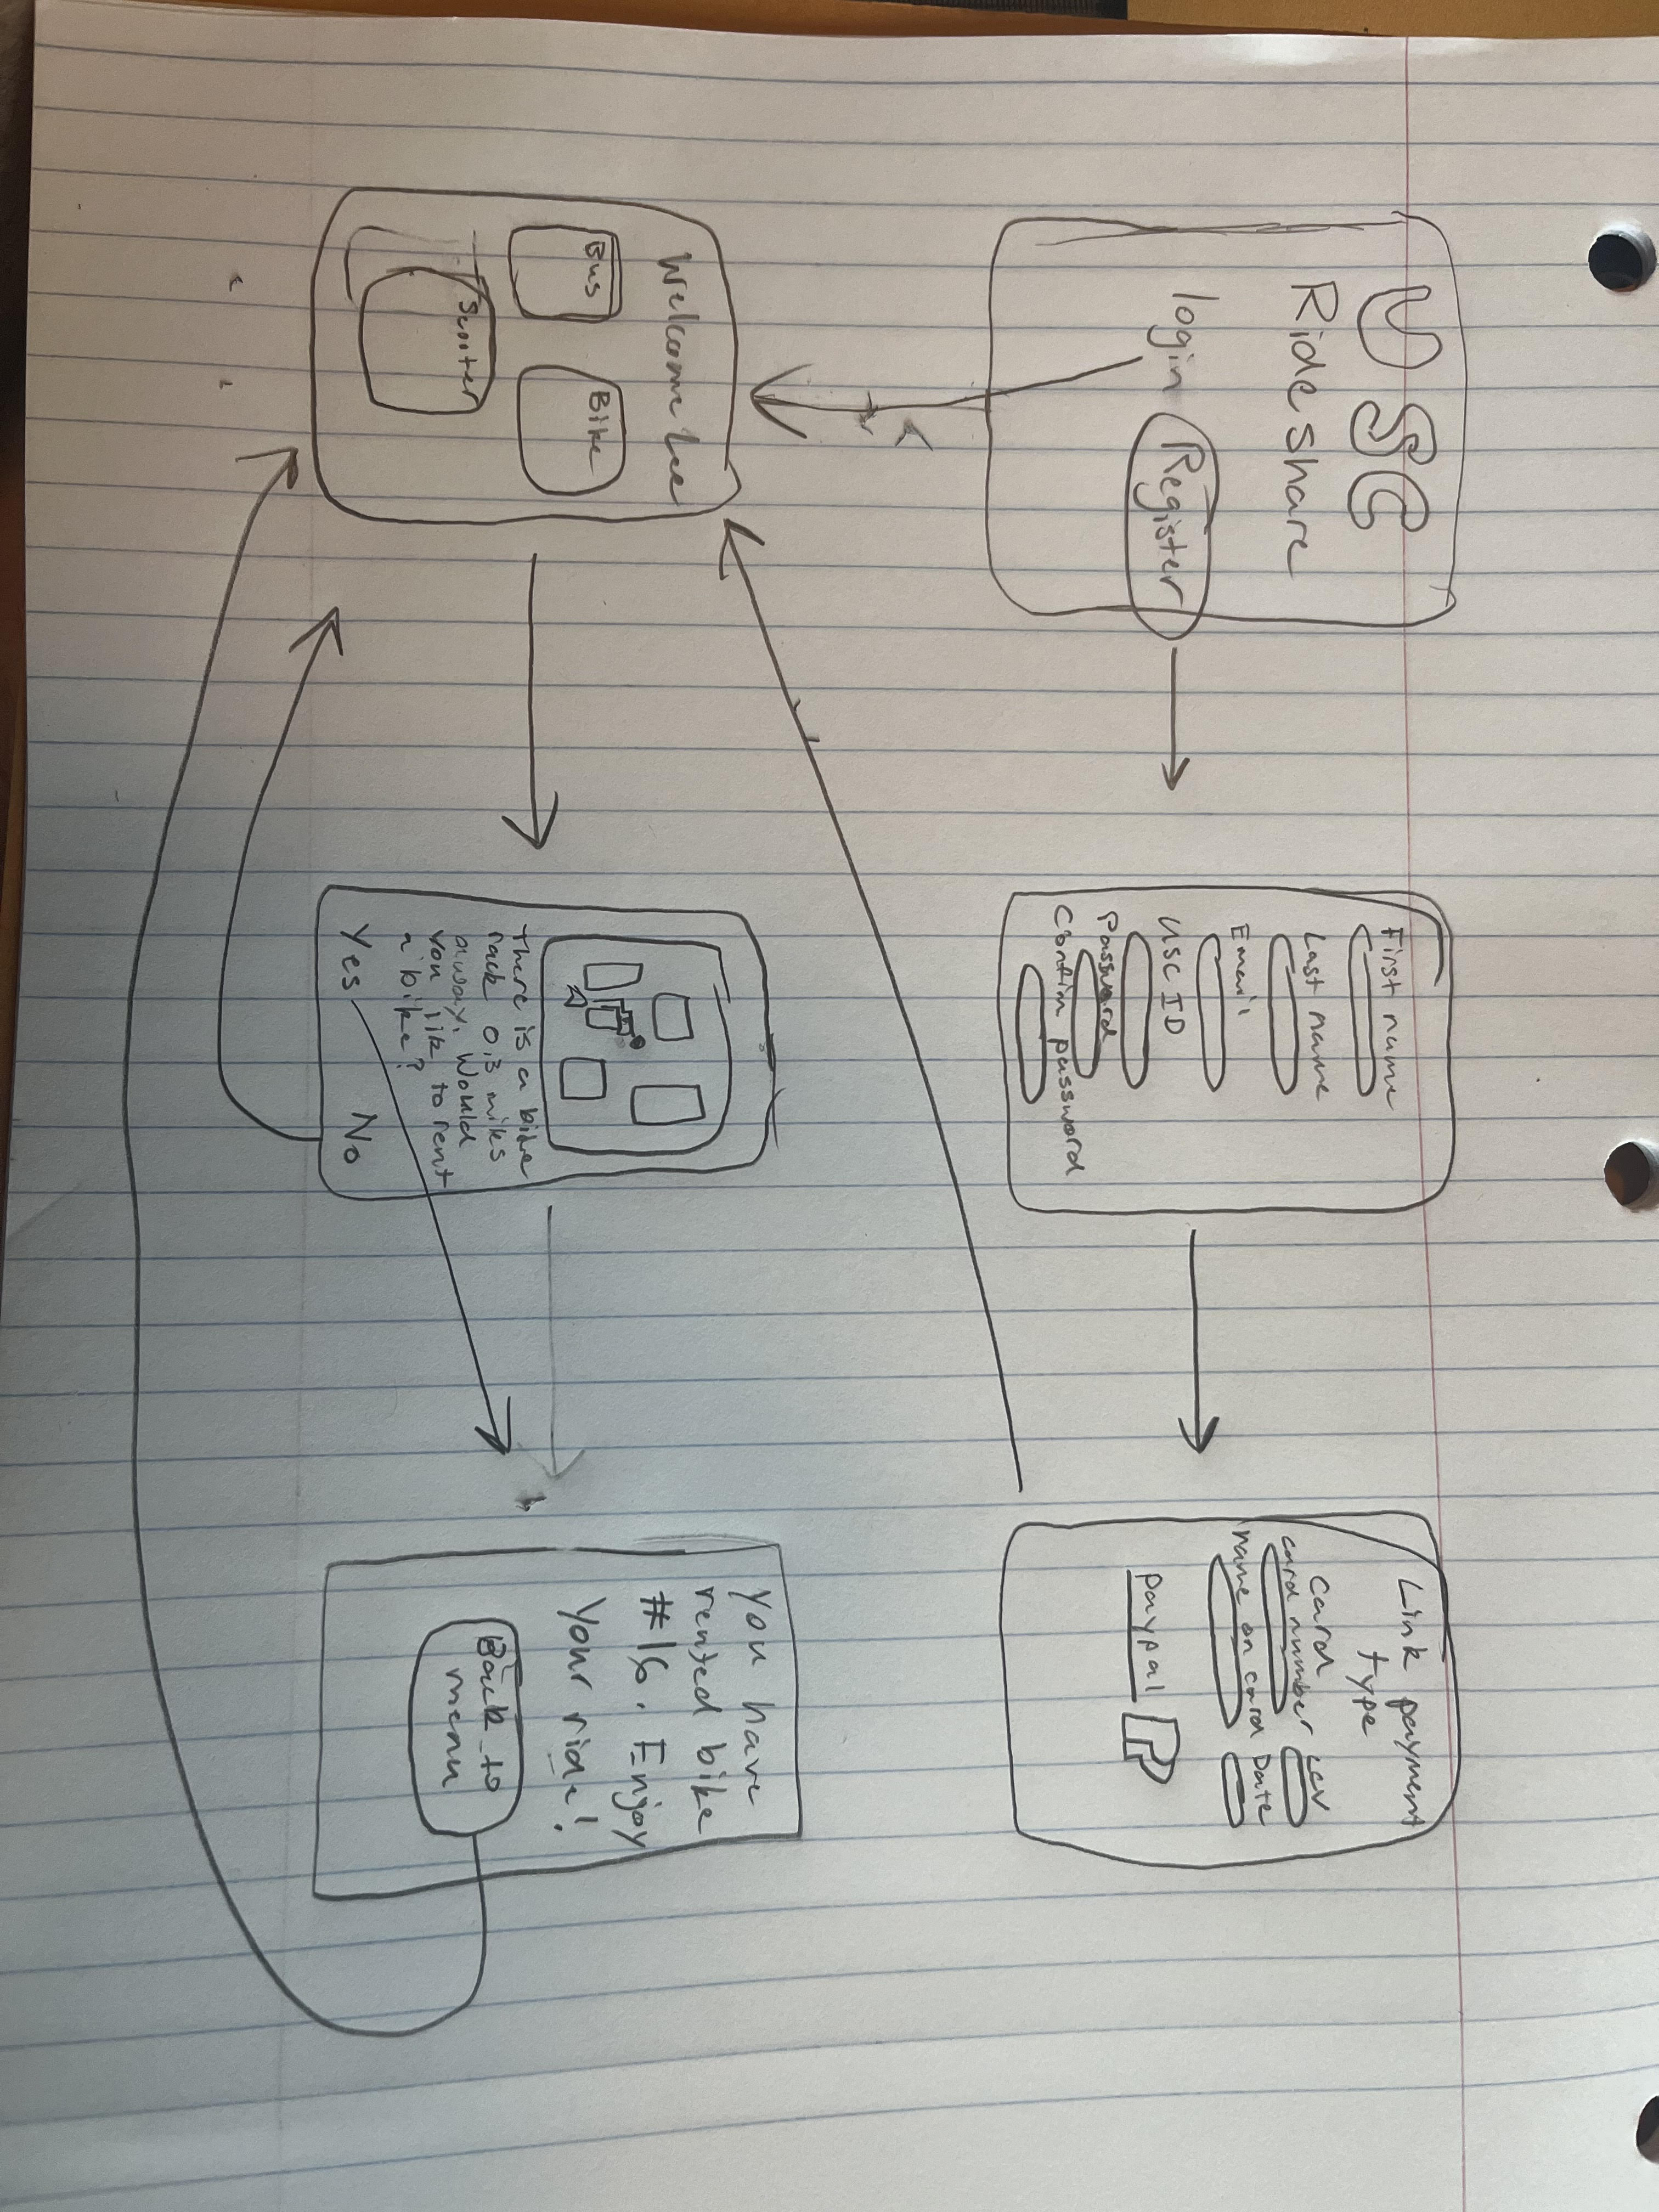 USC
Ride share
login Register
First name
Last name
Email
USC ID
Password
Confirm password
Link payment
type
Card
card number CCV
name on card Date
paypal P
Welcome Lee
Bus Bike
Scooter
There is a bike
rack 0.3 miles
away. Would
you like to rent
a bike?
Yes No
You have
rented bike
#16. Enjoy
Your ride!
Back to
menu